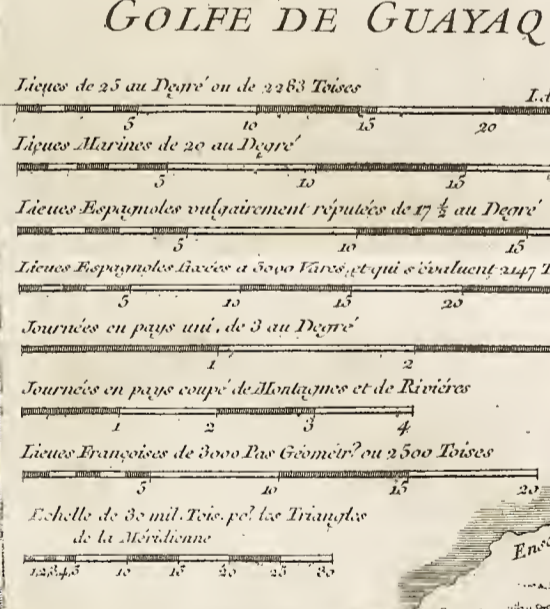 GOLFE DE GUAYAQ
Lieues de 25 au Degré ou de 2283 Toises
5 10 15 20
Lieues Marines de 20 au Degré
5 10 15
Lieues Espagnoles vulgairement réputées de 17 ½ au Degré
5 10 15
Lieues Espagnoles fixées a 5000 Vares, et qui s'évaluent 2147 T
5 10 15 20
Journées en pays uni, de 3 au Degré
1 2
Journées en pays coupé de Montagnes et de Riviéres
1 2 3 4
Lieues Françoises de 3000 Pas Géometr.^s ou 2500 Toises
5 10 15 20
Echelle de 30 mil. Tois. po.^r les Triangles
de la Méridienne
1 2 3 4 5 10 15 20 25 30
Ense